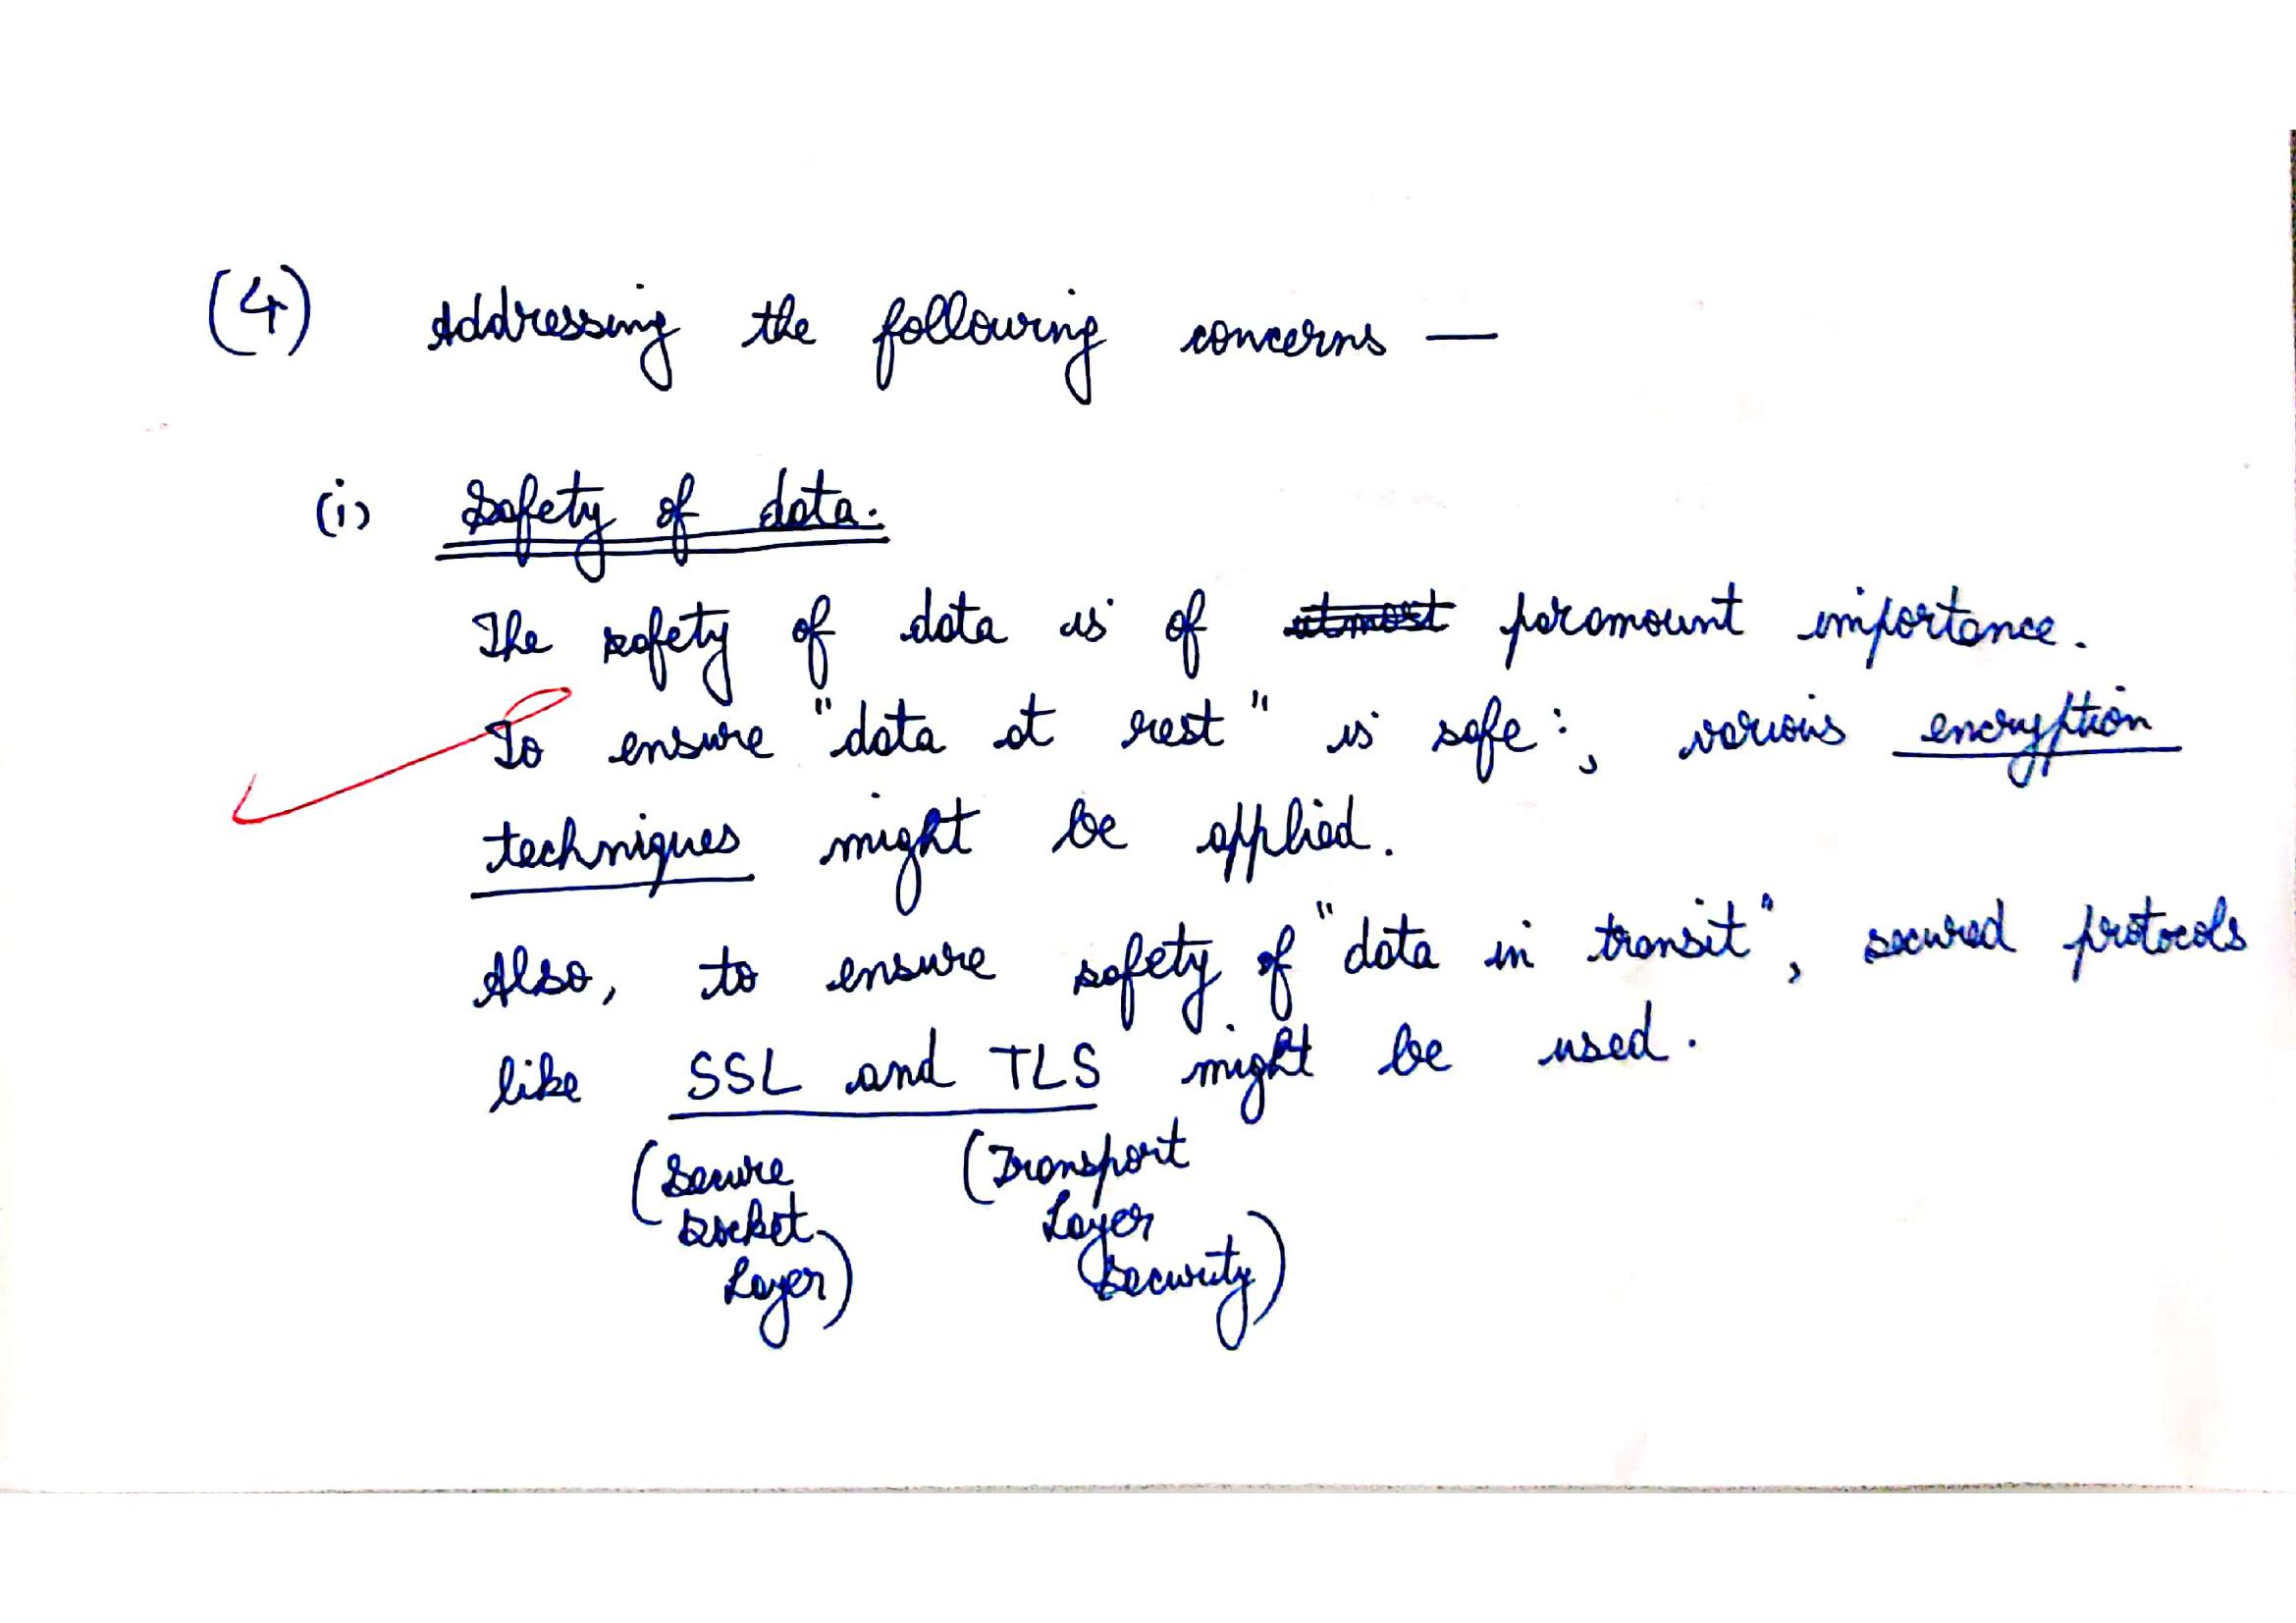 (4) Addressing the following concerns —
(i) Safety of data.
The safety of data is of utmost paramount importance.
To ensure "data at rest" is safe:, various encryption
techniques might be applied.
Also, to ensure safety of "data in transit", secured protocols
like SSL and TLS might be used.
(Secure (Transport
Socket Layer
Layer) Security)